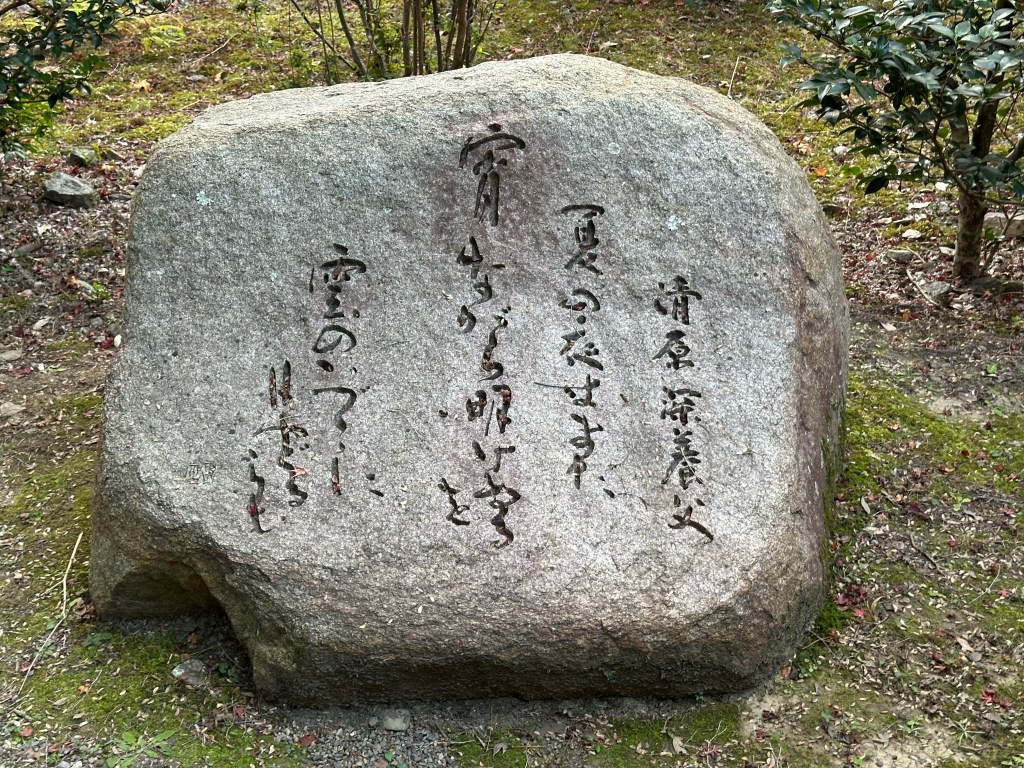 清原深養父
夏の夜はまだ
宵ながら明けぬる
を
雲のいづこに
月やどる
らむ